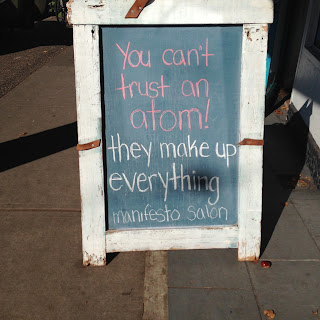 You can't
trust an
atom!
they make up
everything
manifesto salon